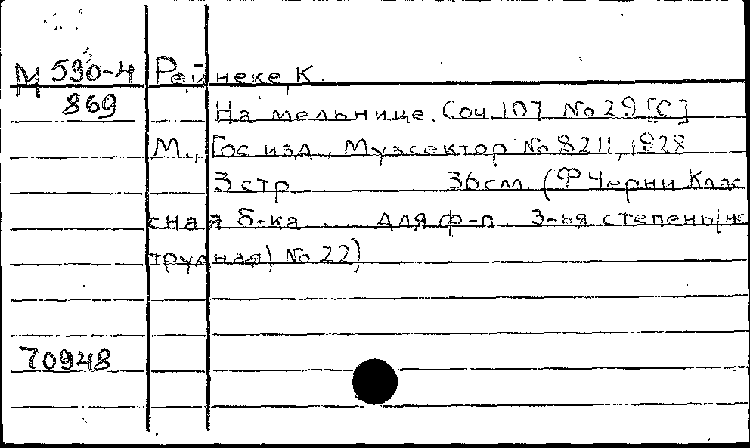 М 590-4 Рейнеке, К.
869 На мельнице. Соч. 107 No 29 [С]
М., Гос. изд., Музсектор No 8211, 1928
3 стр. 36 см. (Ф Черни Клас
сная б-ка ... для ф-п. 3-ья степень (не
трудная) No 22)
70948